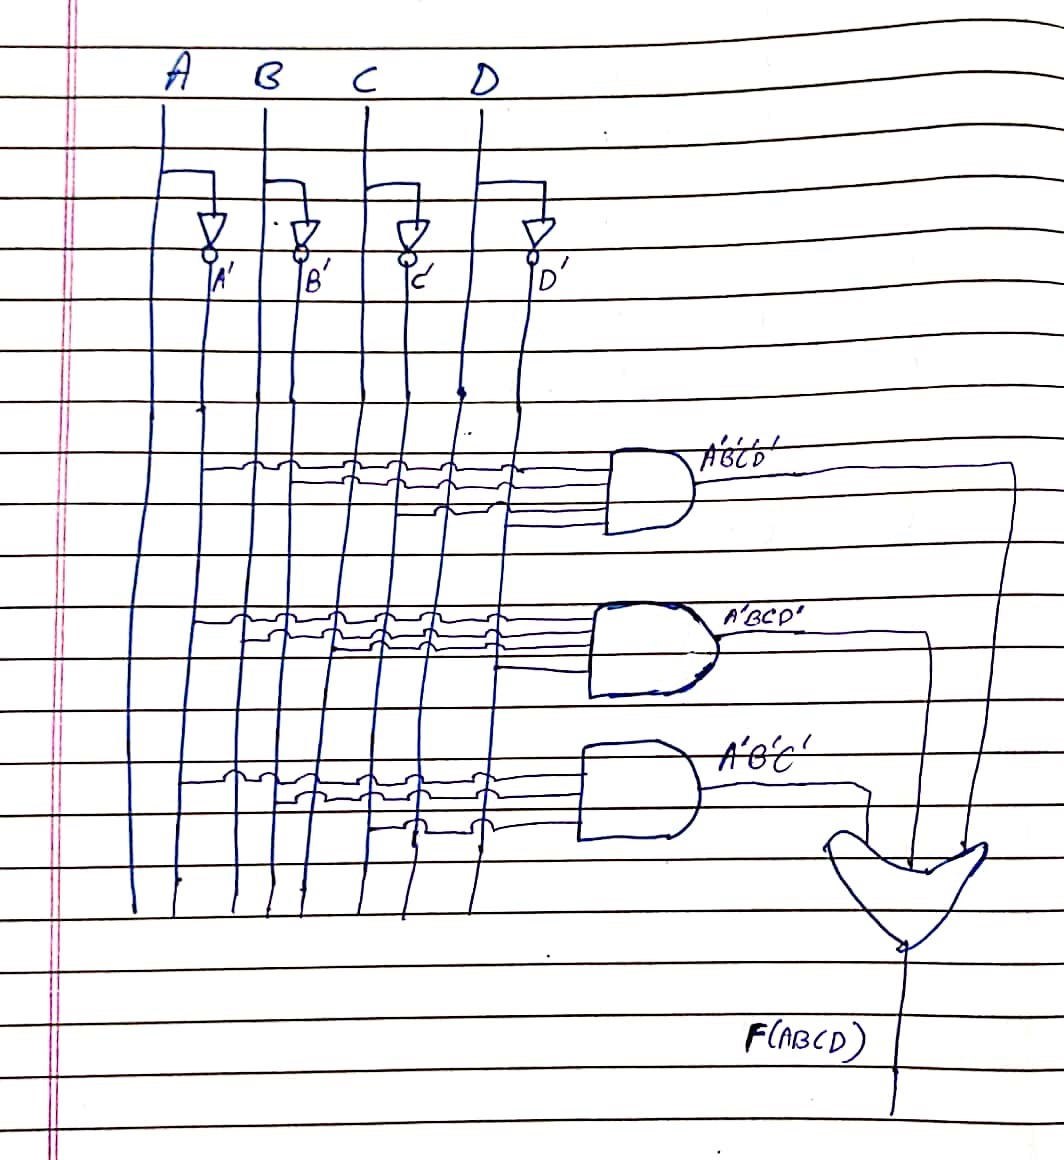 A B C D
A' B' C' D'
A'B'C'D'
A'BCD'
A'B'C'
F(ABCD)